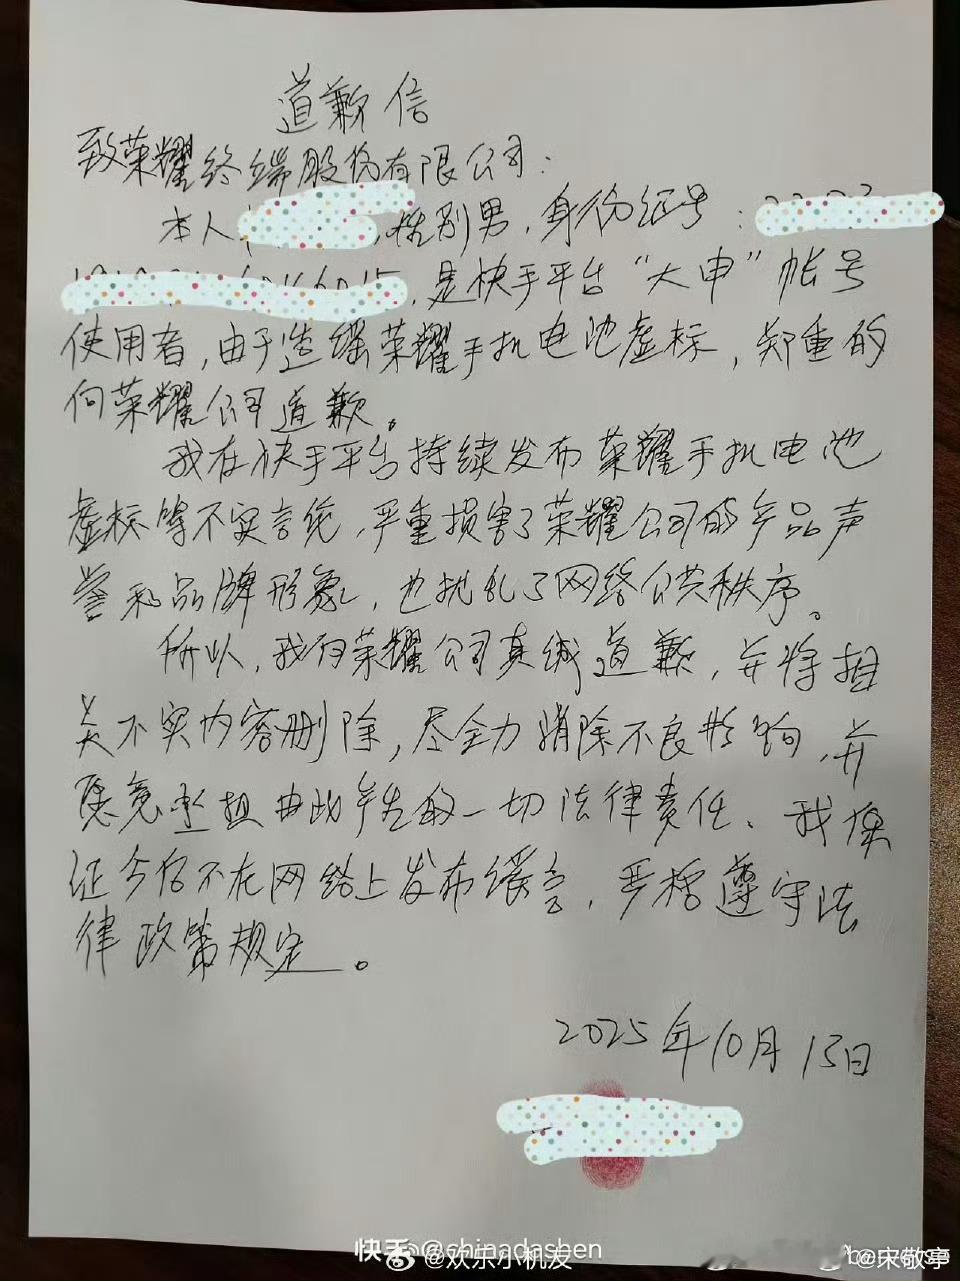 道歉信
致荣耀终端股份有限公司：
本人，性别男，身份证号：
，是快手平台“大申”帐号
使用者，由于造谣荣耀手机电池虚标，郑重的
向荣耀公司道歉。
我在快手平台持续发布荣耀手机电池
虚标等不实言统，严重损害了荣耀公司的产品声
誉和品牌形象，也扰乱了网络公共秩序。
所以，我向荣耀公司真诚道歉，并将相
关不实内容删除，尽全力消除不良影响，并
愿意承担由此产生的一切法律责任、我保
证今后不在网络上发布谣言，严格遵守法
律政策规定。
2025年10月13日
快手 @chinadashen
@欢乐小机友
@宋敬亭